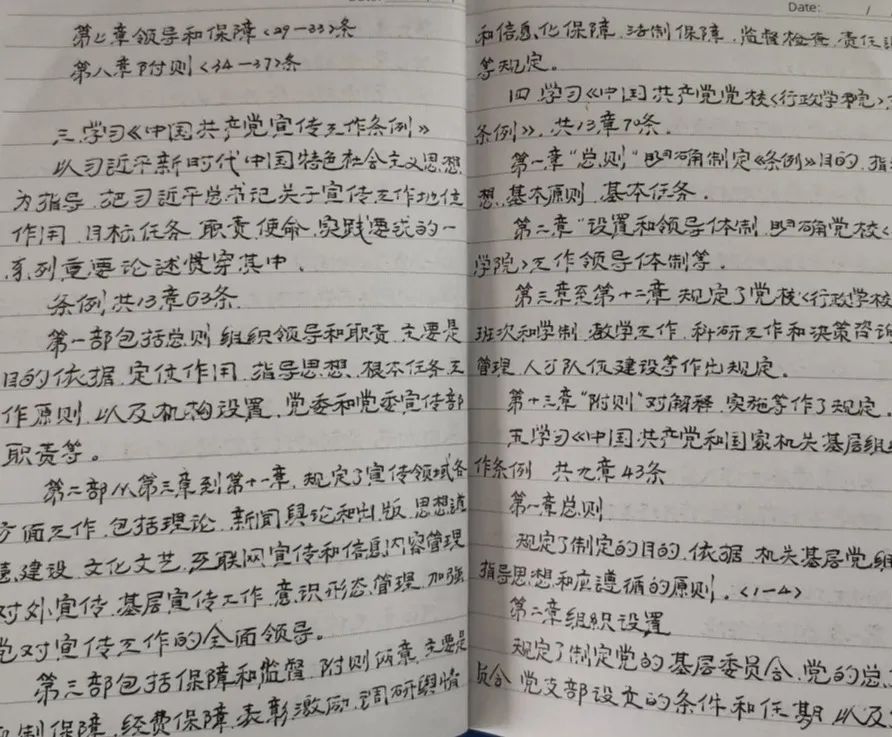 第七章领导和保障<29-33>条
第八章附则<34-37>条
三.学习《中国共产党宣传工作条例》
以习近平新时代中国特色社会主义思想
为指导.把习近平总书记关于宣传工作地位
作用.目标任务.职责使命.实践要求的一
系列重要论述贯穿其中.
条例共13章63条.
第一部包括总则.组织领导和职责.主要是
目的依据.定位作用.指导思想.根本任务工
作原则.以及机构设置.党委和党委宣传部
职责等。
第二部从第三章到第十一章.规定了宣传领域各
方面工作.包括理论.新闻舆论和出版.思想道
德建设.文化文艺.互联网宣传和信息内容管理
对外宣传.基层宣传工作.意识形态管理.加强
党对宣传工作的全面领导。
第三部包括保障和监督.附则两章.主要是
制保障.经费保障.表彰激励.调研舆情
Date: /
和信息化保障.法制保障.监督检查.责任
等规定。
四.学习《中国共产党党校<行政学院>
条例》.共13章70条.
第一章"总则"明确制定《条例》目的.指
想.基本原则.基本任务.
第二章"设置和领导体制.明确党校<
学院>工作领导体制等.
第三章至第十二章.规定了党校<行政学校
班次和学制.教学工作.科研工作和决策咨询
管理.人才队伍建设等作出规定。
第十三章"附则"对解释.实施等作了规定.
五.学习《中国共产党和国家机关基层组
作条例 共九章43条
第一章总则
规定了制定的目的.依据.机关基层党组
指导思想和应遵循的原则.<1-4>
第二章组织设置
规定了制定党的基层委员会.党的总
员会.党支部设立的条件和任期.以及